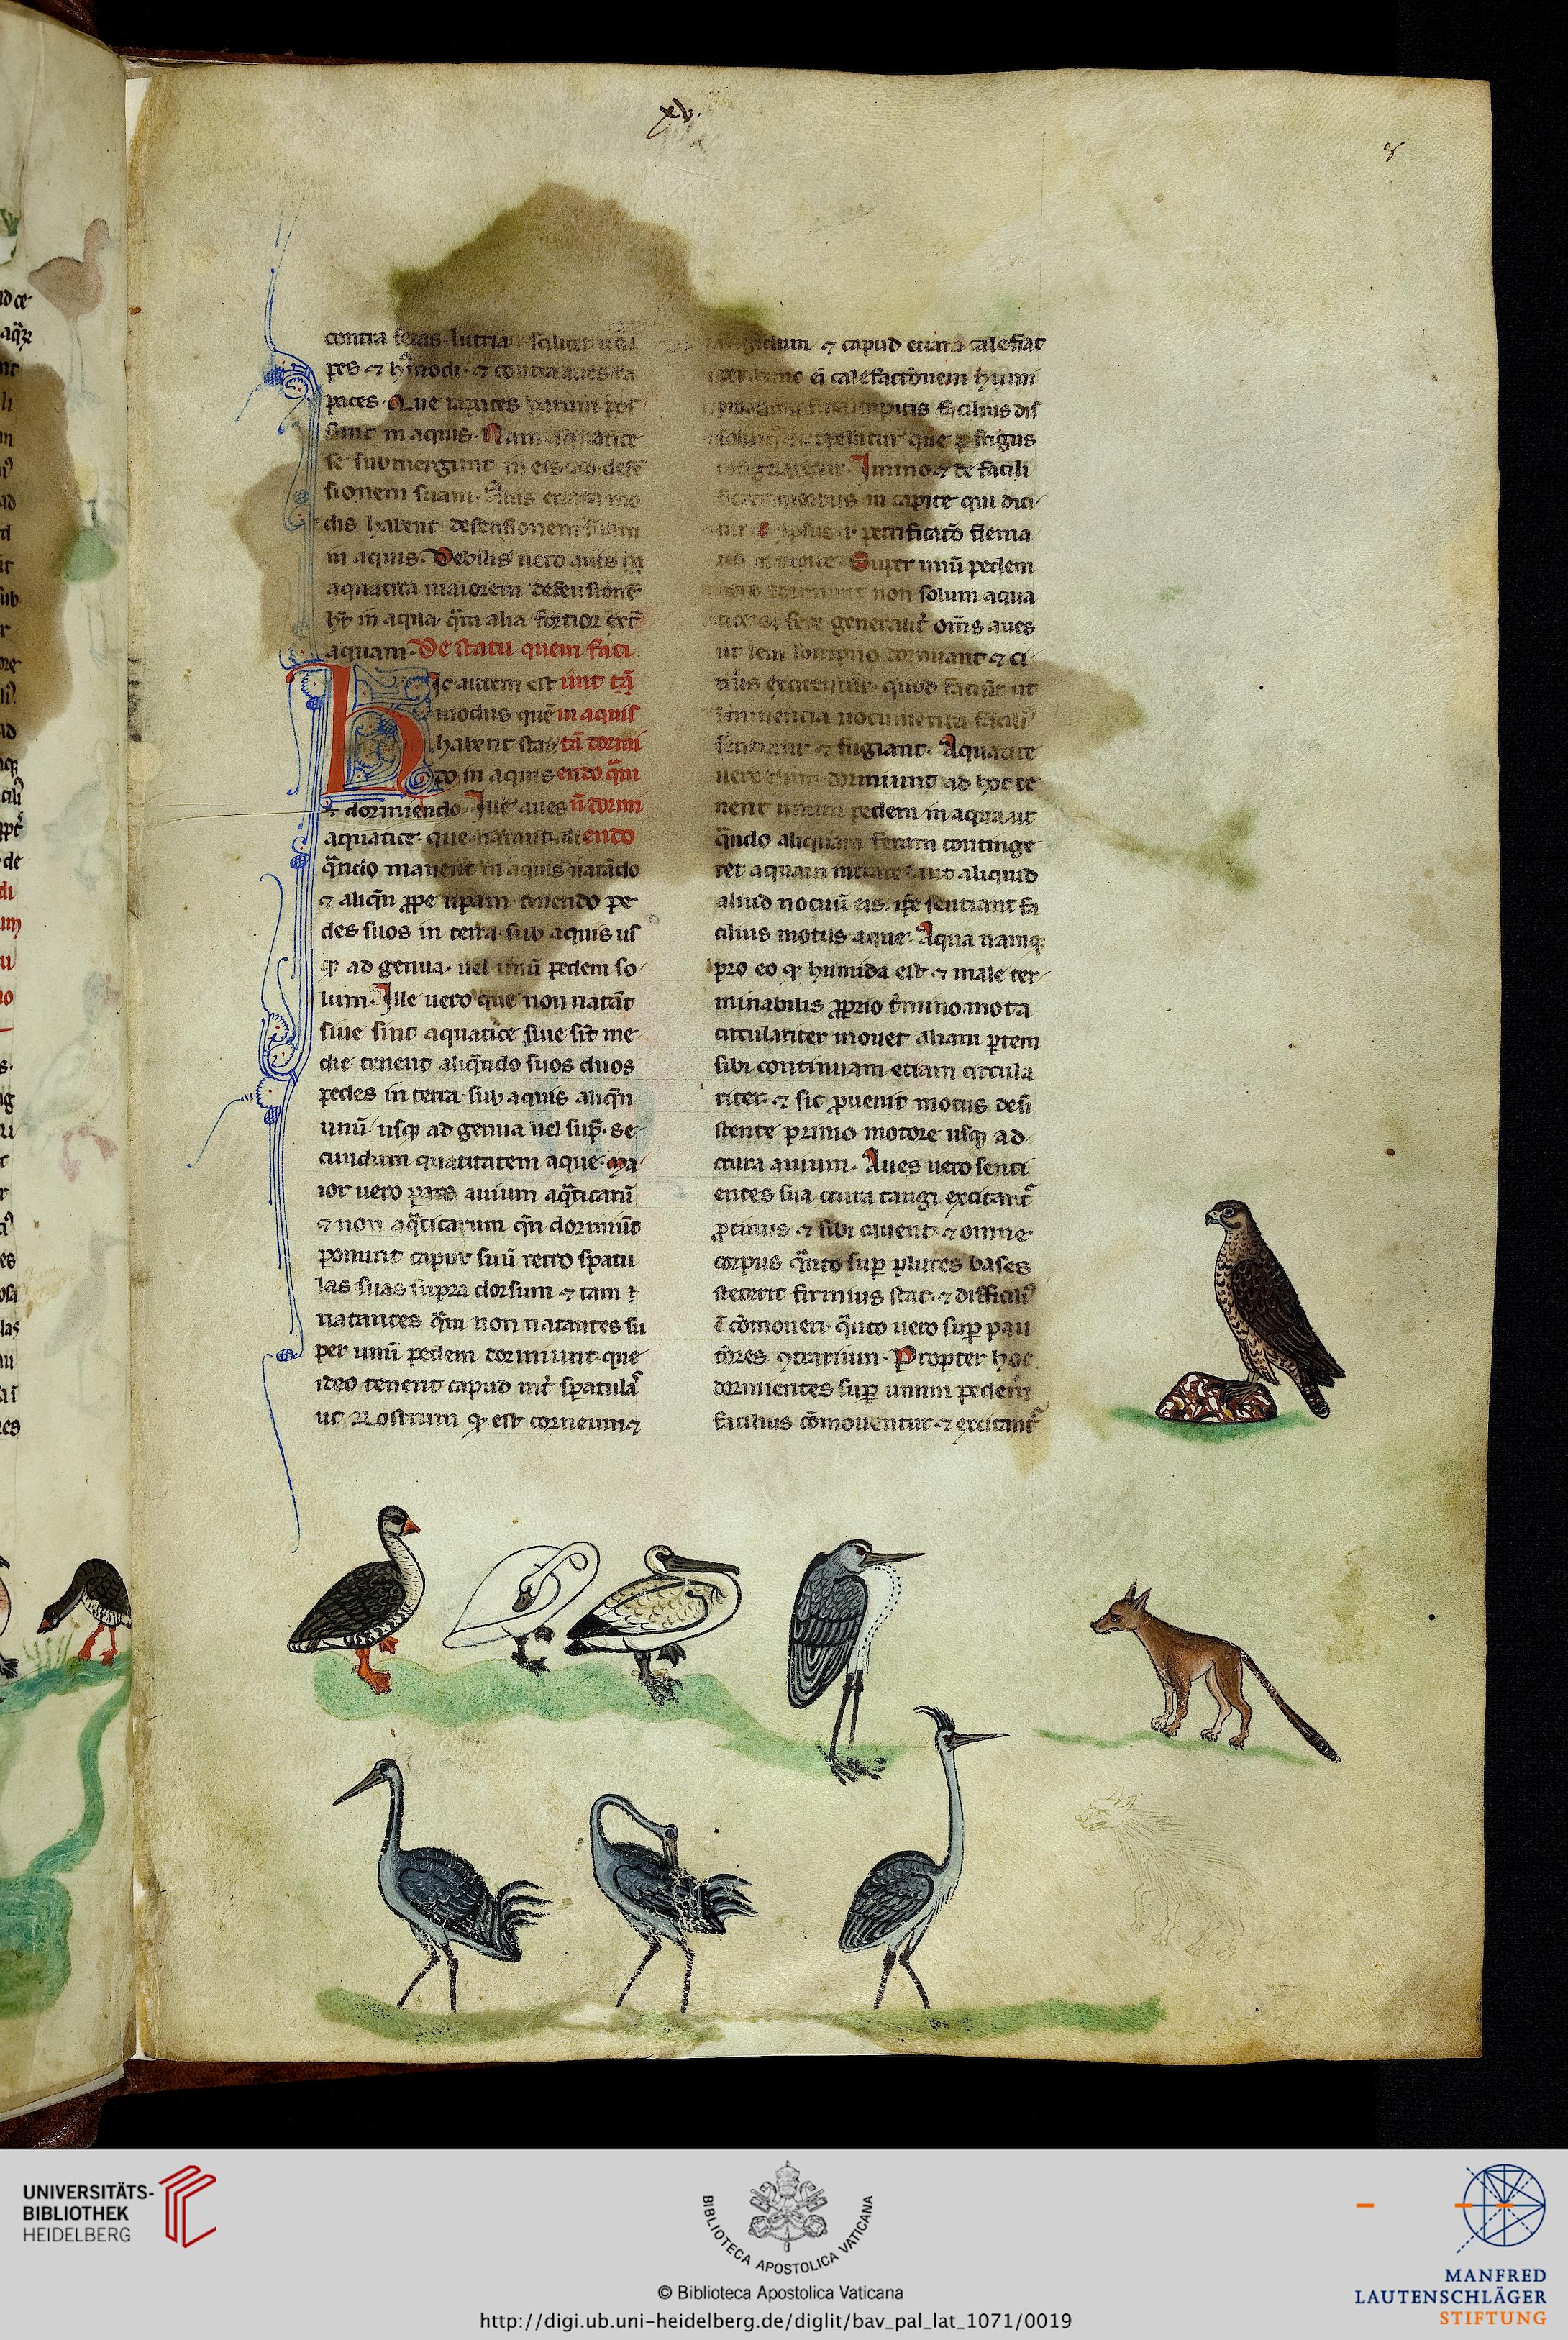 xv.
8
contra feras lutrias scilicet uul
pes ⁊ hꝰmodi. ⁊ contra aues ra
paces. Que rapaces parum pos
sunt in aquis. Nam aquatice
se submergunt in eis ad defē
sionem suam. Aliis etiam mo
dis habent defensionem suam
in aquis. Debilis uero auis in
aquatica maiorem defensionē
hꝫt in aqua. qͣm alia fortior extͣ
aquam. De statu quem faci
Hic autem est unt tā
modus quē in aquis
habent stan tā dormi
do in aquis endo qͣm
⁊ dormiendo Ille aues n̄ dormi
aquatice que natant. ali endo
qͣndo manent in aquis natādo
⁊ aliqn̄ ꝓpe ripam tenendo pe
des suos in terra sub aquis us
qꝫ ad genua. uel unū pedem so
lum. Ille uero que non natāt
siue sint aquatice siue sīt me
die. tenent aliqͣndo suos duos
pedes in terra sub aquis aliqn̄
unū usqꝫ ad genua uel supͣ. se
cundum quātitatem aque. Ma
ior uero pars auium aqͣticarū
⁊ non aqͣticarum qn̄ dormiūt
ponunt caput suū retro spatu
las suas supra dorsum ⁊ tam
natantes qͣm non natantes su
per unū pedem dormiunt. que
ideo tenent capud int̉ spatulaˢ
ut Rostrum qꝫ est corneum ⁊
frigidum ⁊ capud etiam calefiat
ei calefactōnem humi
capitis facilius dis
que ꝑ frigus
Immo ⁊ de facili
fieret morbus in capite qui dici
petrificatō flema
Super unū pedem
uero dormiunt non solum aqua
tice. Sꝫ fere generalit̉ om̄s aues
ut leui sompno dormiant ⁊ ci
tiꝰ excitentur. quod faciūt ut
iminencia nocumenta faciliꝰ
sentiant ⁊ fugiant. Aquatice
uero dum dormiunt ad hoc te
nent unum pedem in aqua ut
qͣndo aliquam feram continge
ret aquam intrare aut aliquid
aliud nociuū eis. ip̄e sentiant fa
cilius motus aque. Aqua namqꝫ
pro eo qꝫ humida est ⁊ male ter
minabilis ꝓprio t̉mino mota
circulariter mouet aliam ꝑtem
sibi continuam etiam circula
riter. ⁊ sic ꝓuenit motus desi
stente primo motore usqꝫ ad
crura auium. Aues uero senti
entes sua crura tangi excitantᷣ
ꝓtinus ⁊ sibi cauent. ⁊ omne
corpus qͣnto suꝑ plures bases
steterit firmius stat. ⁊ difficiliꝰ
ē cōmoueri. qͣnto uero suꝑ pau
tiores ꝯtrarium. Propter hoc
dormientes suꝑ unum pedem
facilius cōmouentur. ⁊ excitantᷣ
UNIVERSITÄTS-
BIBLIOTHEK
HEIDELBERG
BIBLIOTECA APOSTOLICA VATICANA
© Biblioteca Apostolica Vaticana
http://digi.ub.uni-heidelberg.de/diglit/bav_pal_lat_1071/0019
MANFRED
LAUTENSCHLÄGER
STIFTUNG